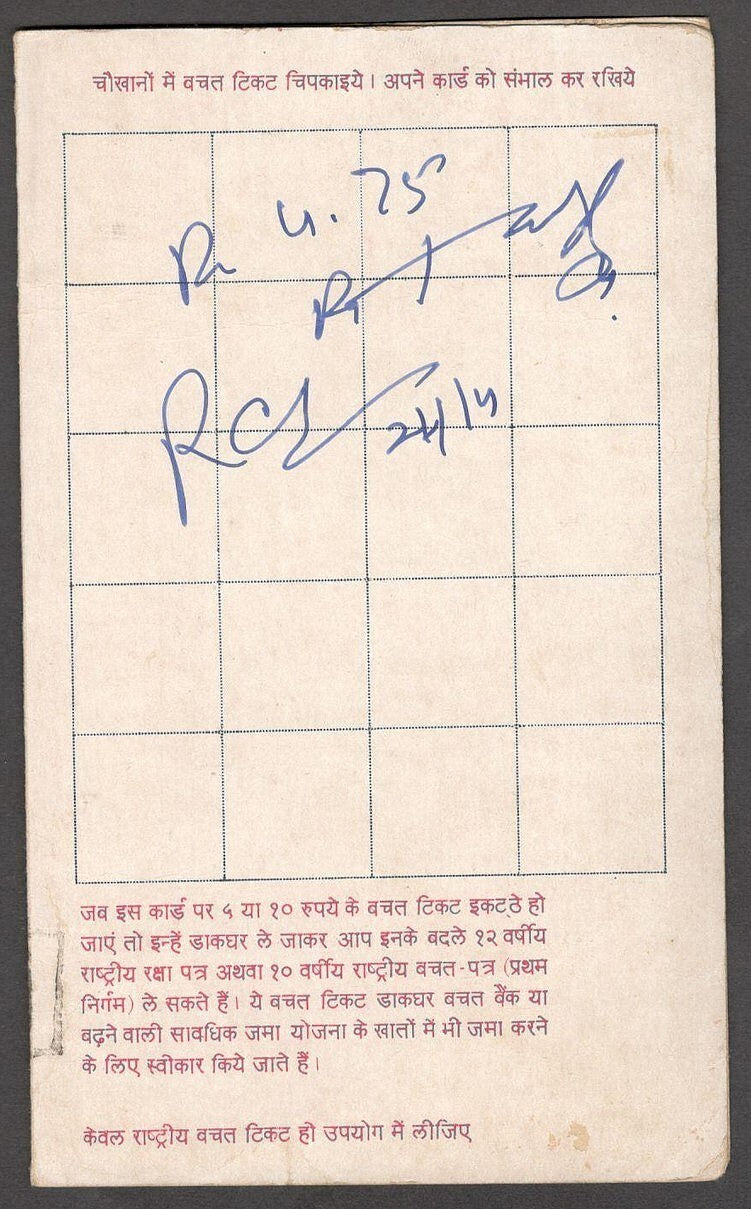 चौखानों में बचत टिकट चिपकाइये। अपने कार्ड को संभाल कर रखिये
4.75
जब इस कार्ड पर ५ या १० रुपये के बचत टिकट इकट्ठे हो
जाएं तो इन्हें डाकघर ले जाकर आप इनके बदले १२ वर्षीय
राष्ट्रीय रक्षा पत्र अथवा १० वर्षीय राष्ट्रीय बचत-पत्र (प्रथम
निर्गम) ले सकते हैं। ये बचत टिकट डाकघर बचत बैंक या
बढ़ने वाली सावधिक जमा योजना के खातों में भी जमा करने
के लिए स्वीकार किये जाते हैं।
केवल राष्ट्रीय बचत टिकट ही उपयोग में लीजिए